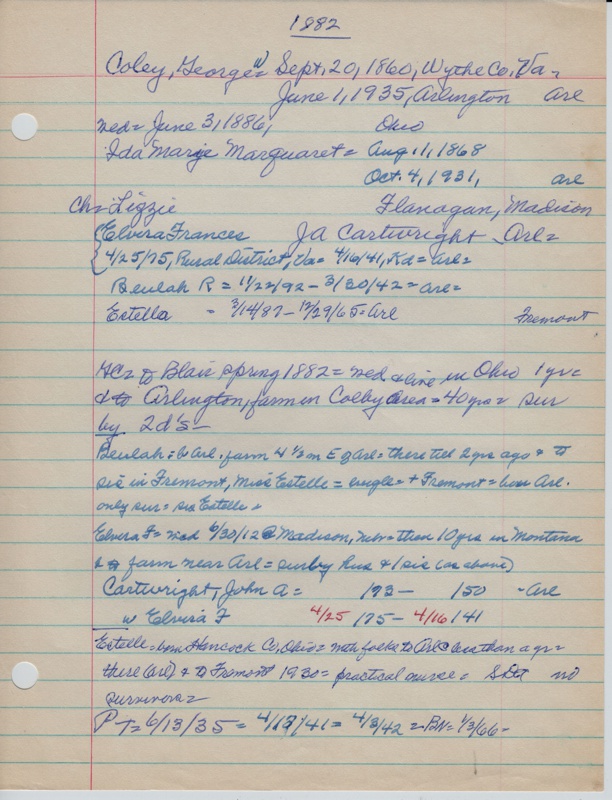 1882
Coley, George W = Sept. 20, 1860, Wythe Co. Va =
June 1, 1935, Arlington Arl
med = June 3, 1886, Ohio
Ida Marije Marquaret = Aug. 1, 1868
Oct. 4, 1931, Arl
Ch = Lizzie Flanagan, Madison
Elvira Frances JA Cartwright Arl =
4/25/75, Rural District, Va = 4/16/41, Kd = Arl =
Beulah R = 11/22/92 - 3/30/42 = Arl =
Estella = 3/14/87 - 12/29/65 = Arl Fremont
GC = to Blair spring 1882 = med & live in Ohio 1 yr =
& to Arlington, farm in Colby area = 40 yrs = sur
by 2 d's -
Beulah = b Arl. farm 4 1/2 m E of Arl = there till 2 yrs ago & to
sis in Fremont, Miss Estelle = single = + Fremont = bur Arl.
only sur = sis Estelle +
Elvira F = med 6/30/12 @ Madison, = then 10 yrs in Montana
& to farm near Arl = sur by hus & 1 sis (as above)
Cartwright, John A = 173 - 150 - Arl
w Elvira F 4/25 175 - 4/16/41
Estelle = born Hancock Co, Ohio = with folks to Arl @ less than a yr =
there (Arl) & to Fremont 1930 = practical nurse = SDA no
survivors =
PT = 6/13/35 = 4/18/41 = 4/3/42 = BN = 1/3/66 -